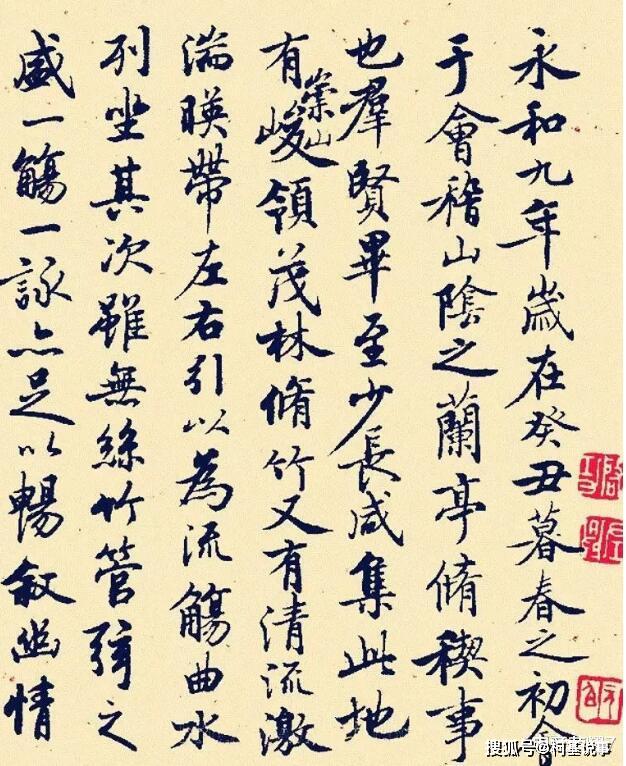 永和九年歲在癸丑暮春之初會
于會稽山陰之蘭亭脩稧事
也羣賢畢至少長咸集此地
有崇山峻領茂林脩竹又有清流激
湍暎帶左右引以為流觴曲水
列坐其次雖無絲竹管弦之
盛一觴一詠亦足以暢敘幽情
搜狐号@柯基说事